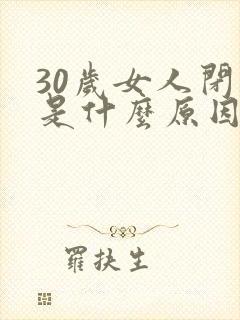 30歲女人閉
是什麼原因
羅扶生